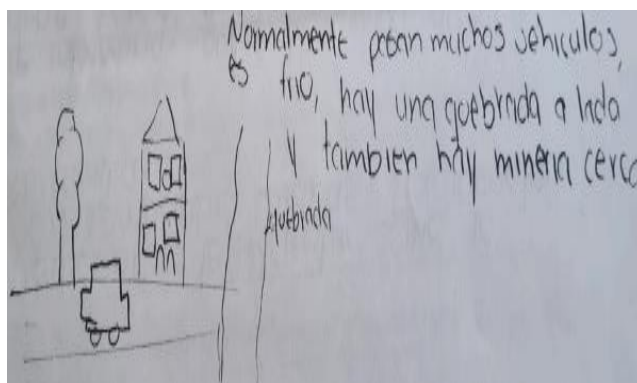 Normalmente pasan muchos vehiculos,
es frio, hay una quebrada a lado
y tambien hay mineria cerca
quebrada